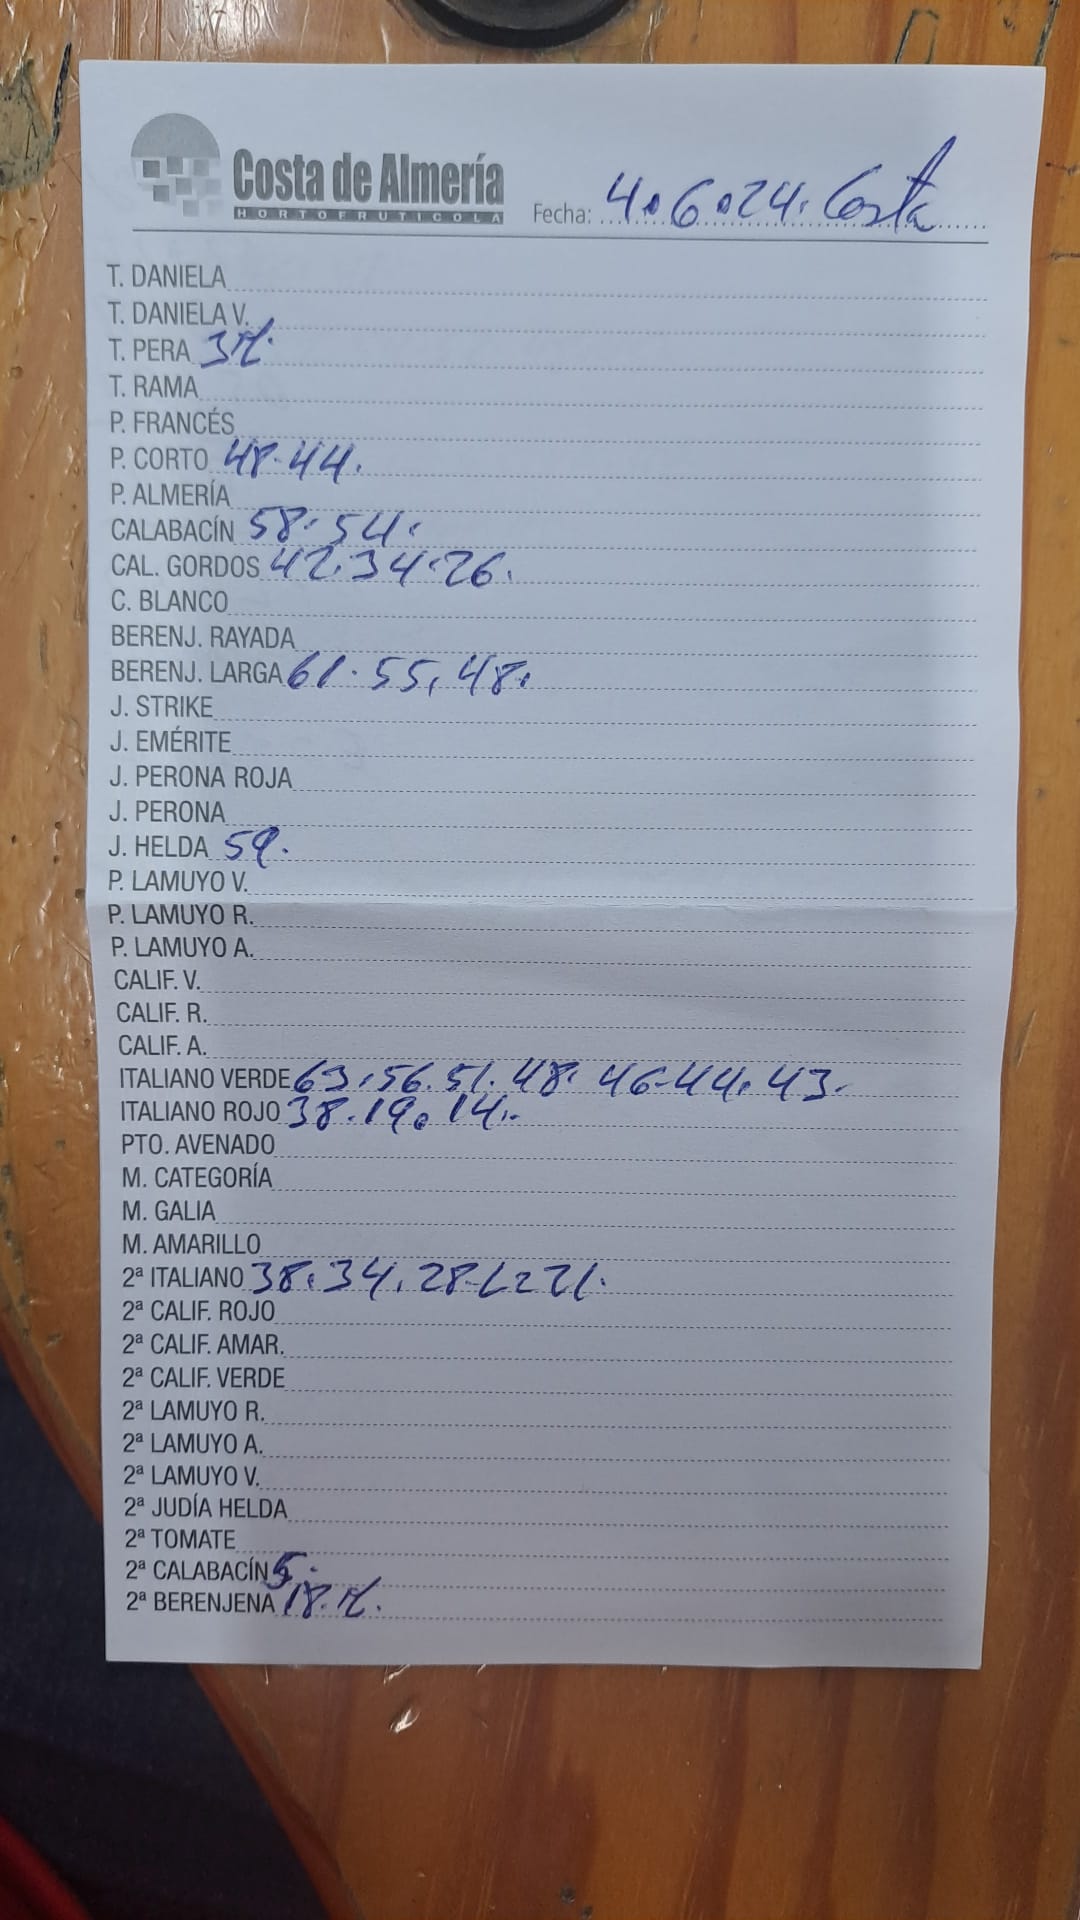 Costa de Almería
HORTOFRUTICOLA
Fecha: 4.6.24. Costa
T. DANIELA
T. DANIELA V.
T. PERA
T. RAMA
P. FRANCÉS
P. CORTO 48.44.
P. ALMERÍA
CALABACÍN 58.54.
CAL. GORDOS 42.34.26.
C. BLANCO
BERENJ. RAYADA
BERENJ. LARGA 61.55.48.
J. STRIKE
J. EMÉRITE
J. PERONA ROJA
J. PERONA
J. HELDA 59.
P. LAMUYO V.
P. LAMUYO R.
P. LAMUYO A.
CALIF. V.
CALIF. R.
CALIF. A.
ITALIANO VERDE 63.56.51.48.46-44.43.
ITALIANO ROJO 38.19.14.
PTO. AVENADO
M. CATEGORÍA
M. GALIA
M. AMARILLO
2ª ITALIANO 38.34.28
2ª CALIF. ROJO
2ª CALIF. AMAR.
2ª CALIF. VERDE
2ª LAMUYO R.
2ª LAMUYO A.
2ª LAMUYO V.
2ª JUDÍA HELDA
2ª TOMATE
2ª CALABACÍN 5.
2ª BERENJENA 18.